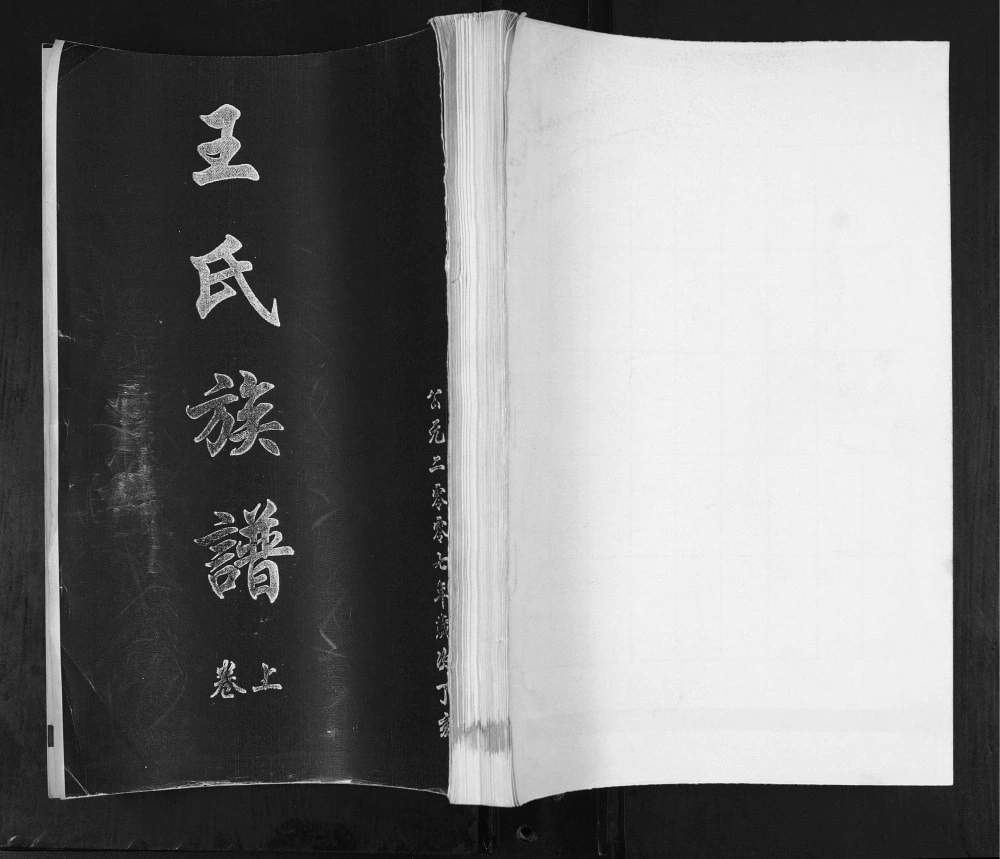 公元二零零七年歲次丁亥
王氏族譜
上卷